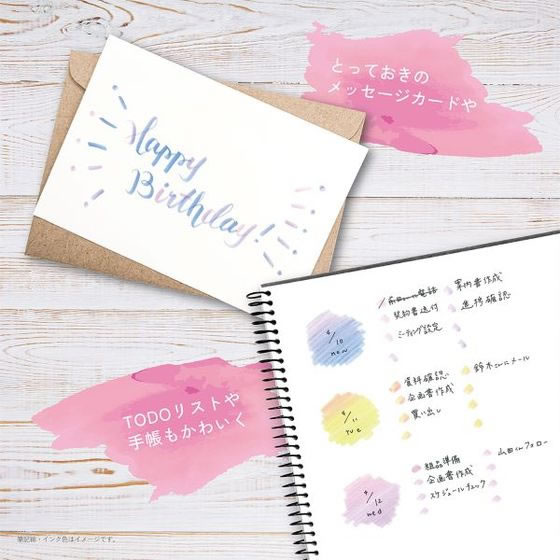 とっておきの
メッセージカードや
Happy
Birthday!
4/10
mon
契約書送付
ミーティング設定
案内書作成
進捗確認
4/11
tue
資料確認
企画書作成
買い出し
鈴木さんにメール
4/12
wed
備品準備
企画書作成
スケジュールチェック
山田くんフォロー
TODOリストや
手帳もかわいく
筆記線・インク色はイメージです。